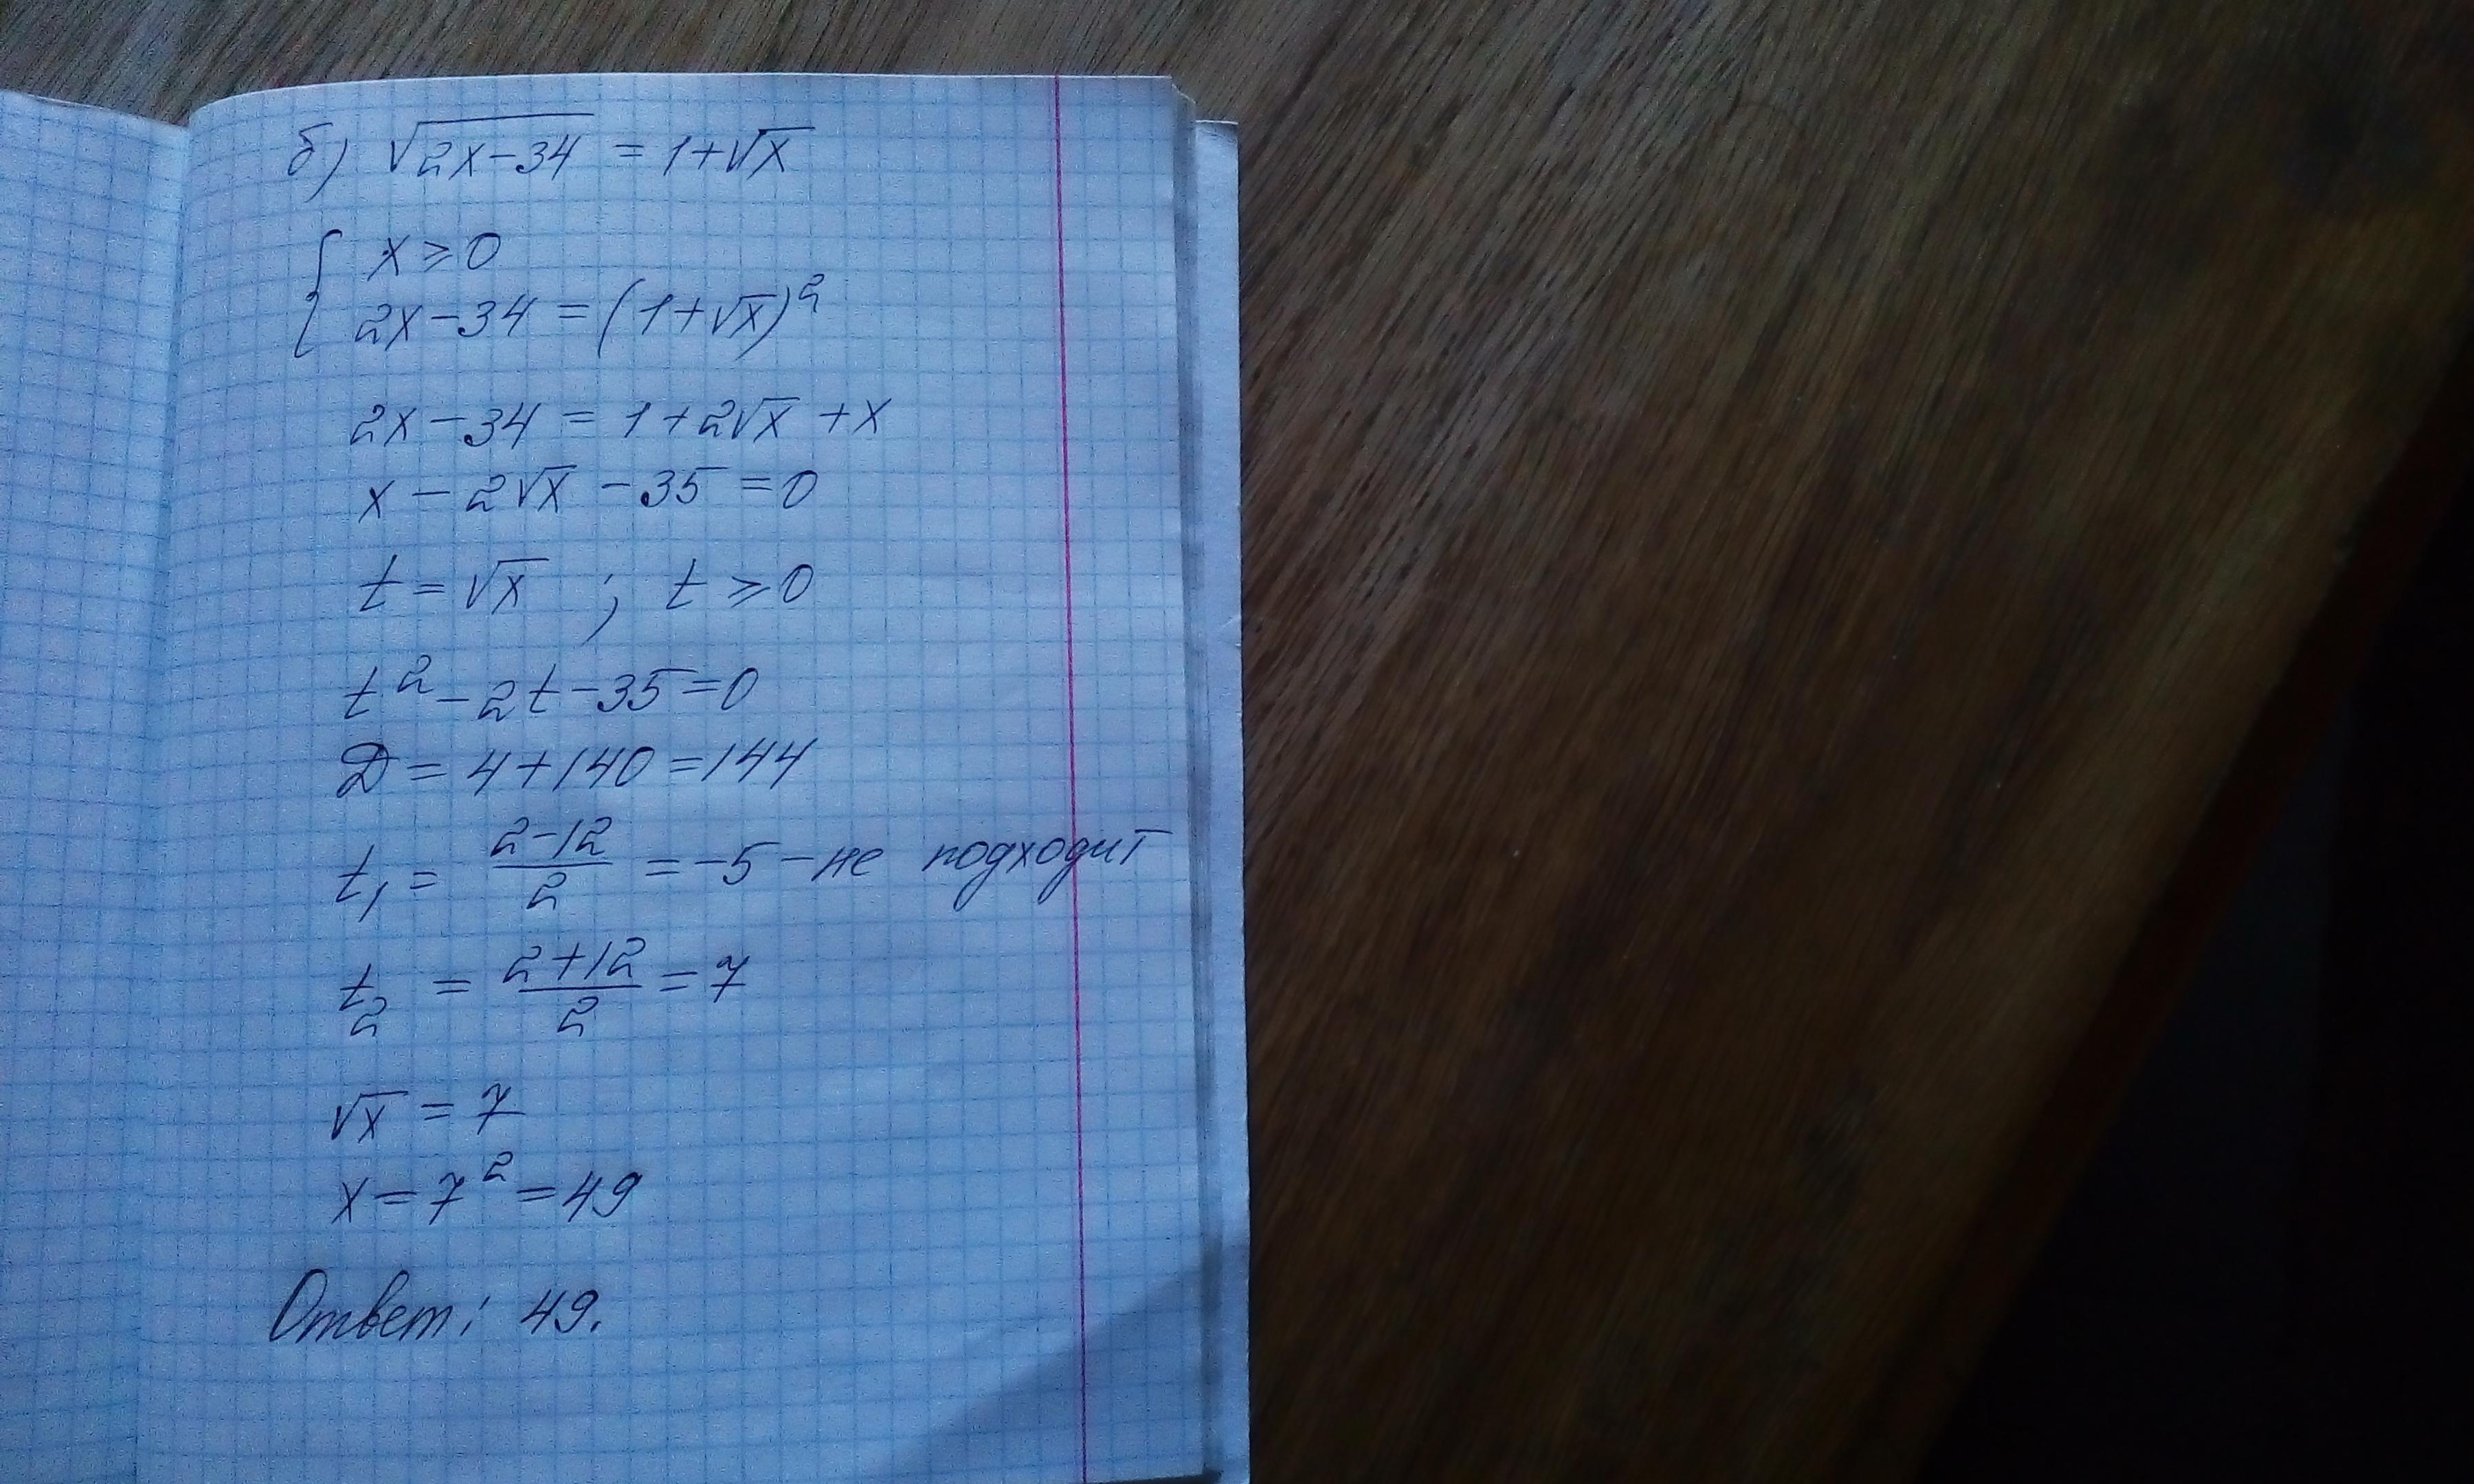 б) √2x-34 = 1+√x
{ x ⩾ 0
2x-34 = (1+√x)²
2x-34 = 1+2√x +x
x - 2√x - 35 = 0
t = √x ; t ⩾ 0
t² - 2t - 35 = 0
D = 4+140 = 144
t₁ = (2-12)/2 = -5 - не подходит
t₂ = (2+12)/2 = 7
√x = 7
x = 7² = 49
Ответ: 49.